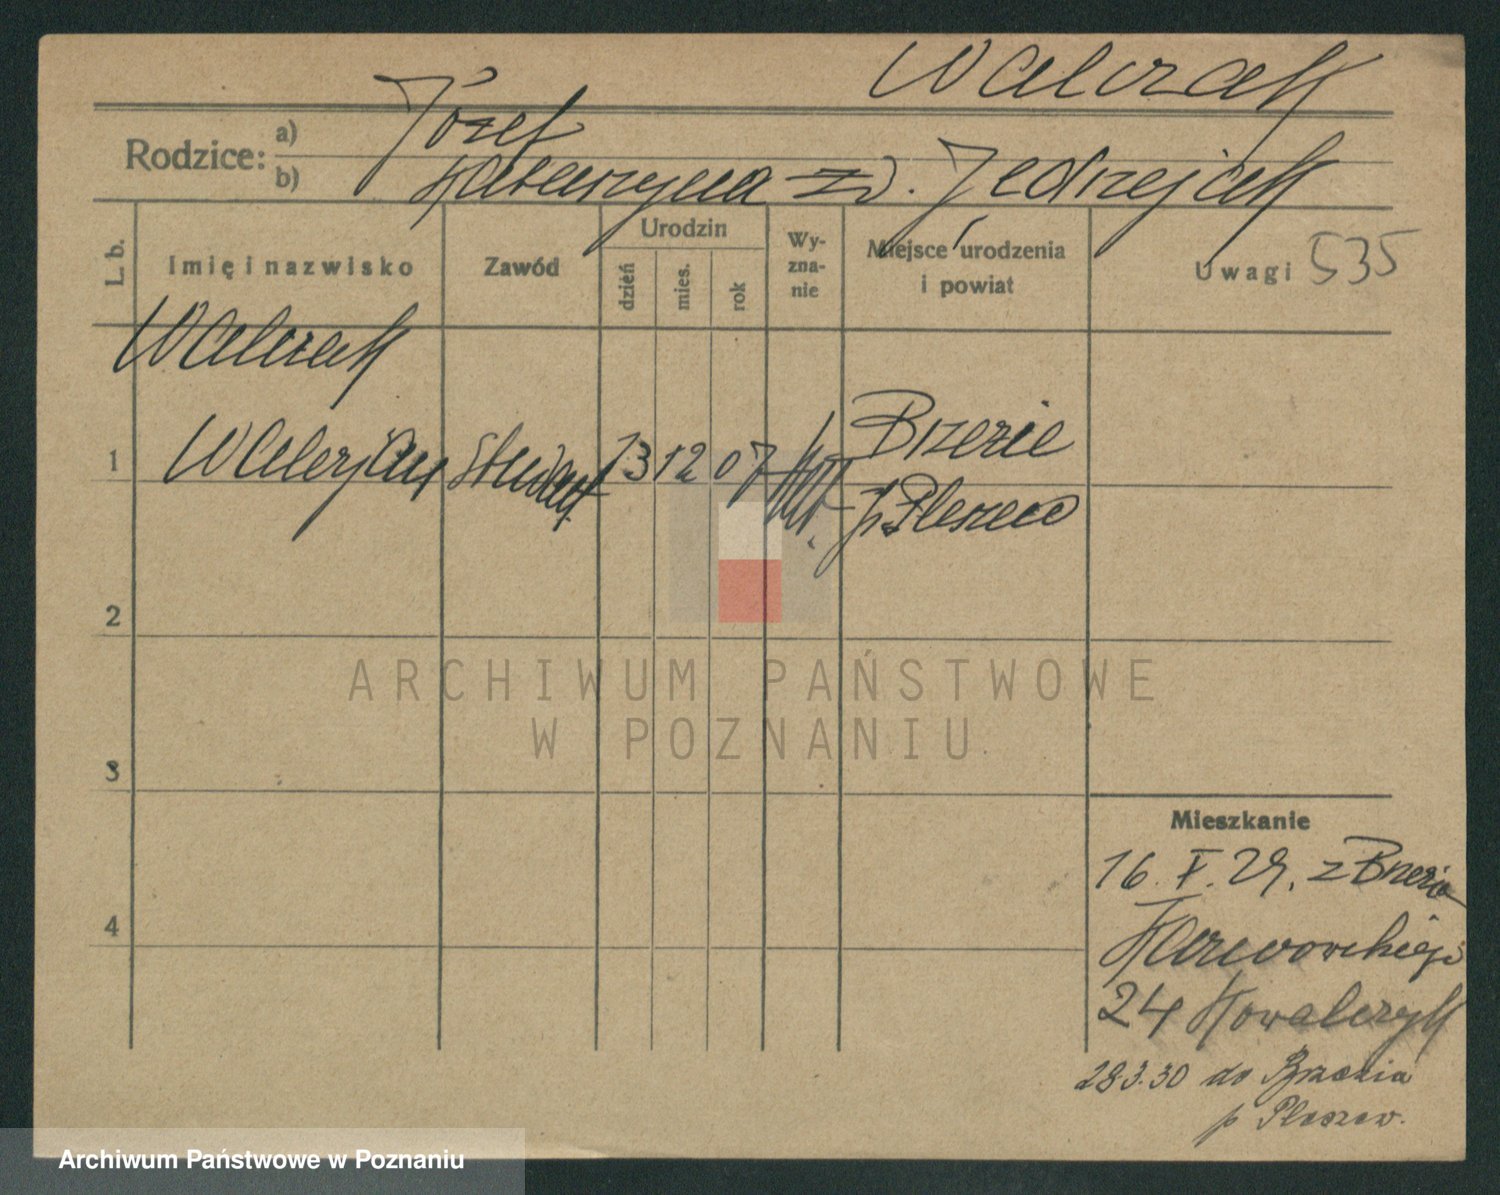 Walczak
Rodzice: a) Józef
b) Katarzyna zd. Jędrzejak
L. b.
Imię i nazwisko
Zawód
Urodzin
dzień
mies.
rok
Wy-
zna-
nie
Miejsce urodzenia
i powiat
Uwagi 535
Walczak
1 Waleryan student 13 12 07 kat. Brzezie
p. Pleszew
2
ARCHIWUM PAŃSTWOWE
W POZNANIU
3
Mieszkanie
16. V. 29. z Brzezia
4
24 Kowalczyk
28.3.30 do Brzezia
p Pleszew.
Archiwum Państwowe w Poznaniu